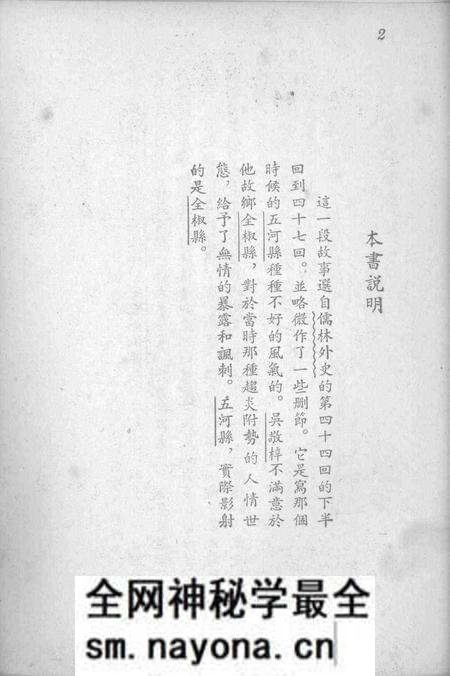 2
本書說明
這一段故事選自儒林外史的第四十四回的下半
回到四十七回。並略微作了一些刪節。它是寫那個
時候的五河縣種種不好的風氣的。吳敬梓不滿意於
他故鄉全椒縣，對於當時那種趨炎附勢的人情世
態，給予了無情的暴露和諷刺。五河縣，實際影射
的是全椒縣。
全网神秘学最全
sm.nayona.cn